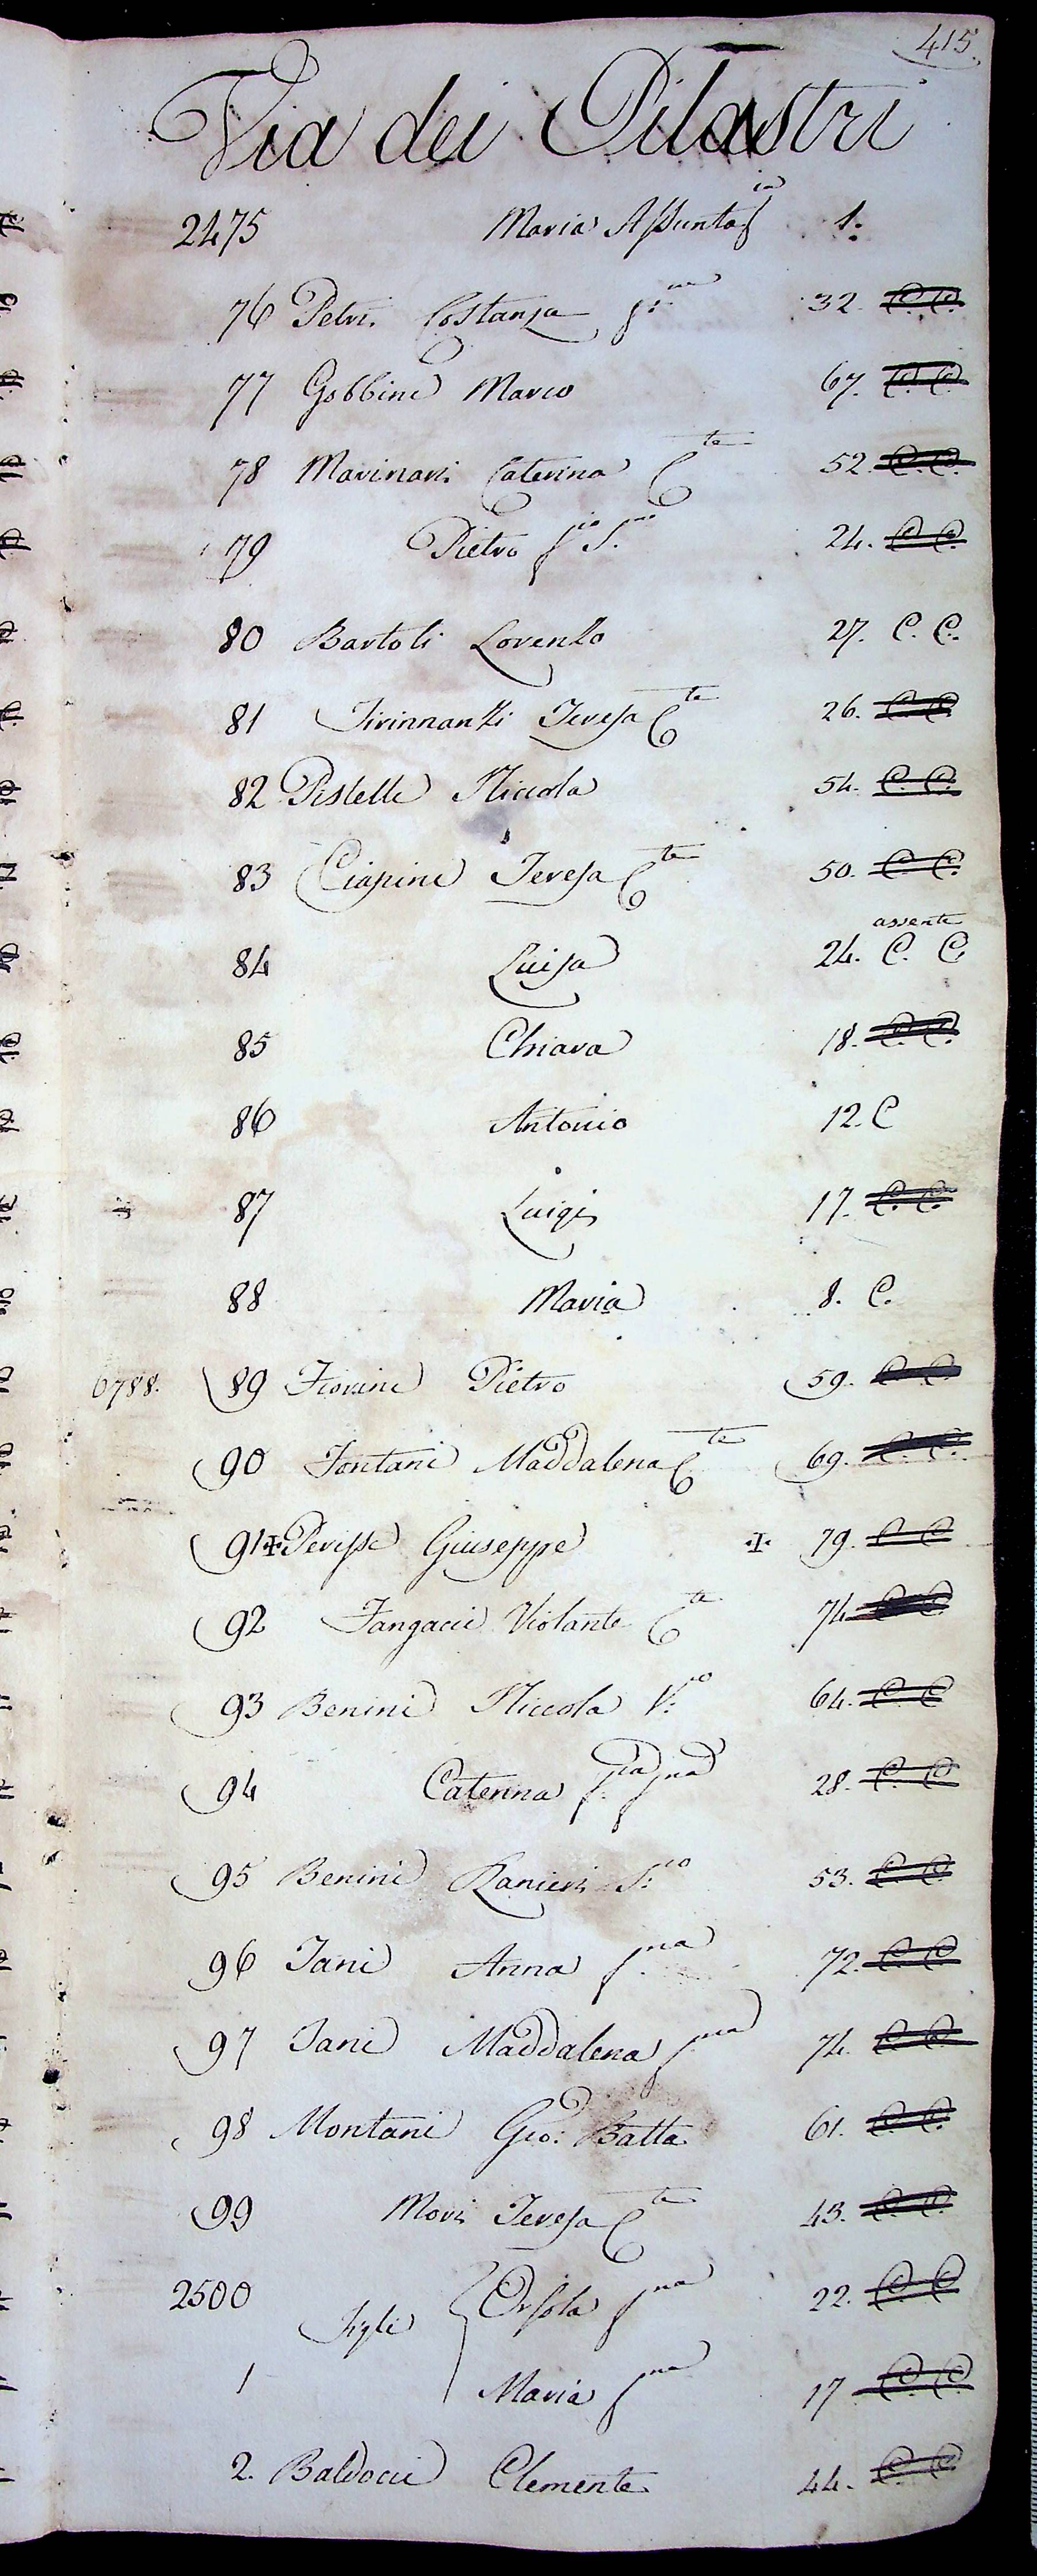 415.
Via dei Pilastri
2475 Maria Assunta f.ia 1.
76 Petri Costanza s:na 32. C. C.
77 Gobbini Marco 67. C. C.
78 Marinari Caterina C.te 52. C. C.
79 Pietro f.io S.no 24. C. C.
80 Bartoli Lorenzo 27. C. C.
81 Tirinnanzi Teresa C.te 26. C. C.
82 Pistelli Niccola 54. C. C.
83 Ciapini Teresa C.te 50. C. C.
assente
84 Luisa 24. C. C.
85 Chiara 18. C. C.
86 Antonio 12. C
87 Luigi 17. C. C.
88 Maria 8. C.
6788. 89 Fiorini Pietro 59. C. C.
90 Fontani Maddalena C.te 69. C. C.
91 ✠ Giuseppe ✠ 79. C C
92 Fangacci Violante C.te 74. C C
93 Benini Niccola V.vo 64. C C
94 Caterina f.ia s.na 28. C C
95 Benini Ranieri S:no 53. C C
96 Tani Anna s.na 72. C C
97 Tani Maddalena s.na 74. C C
98 Montani Gio: Batta 61. C. C.
99 Mori Teresa C.te 43. C. C.
2500 Figli { Orsola s.na 22. C. C
1 Maria s.na 17 C. C.
2. Baldocci Clemente 44. C. C